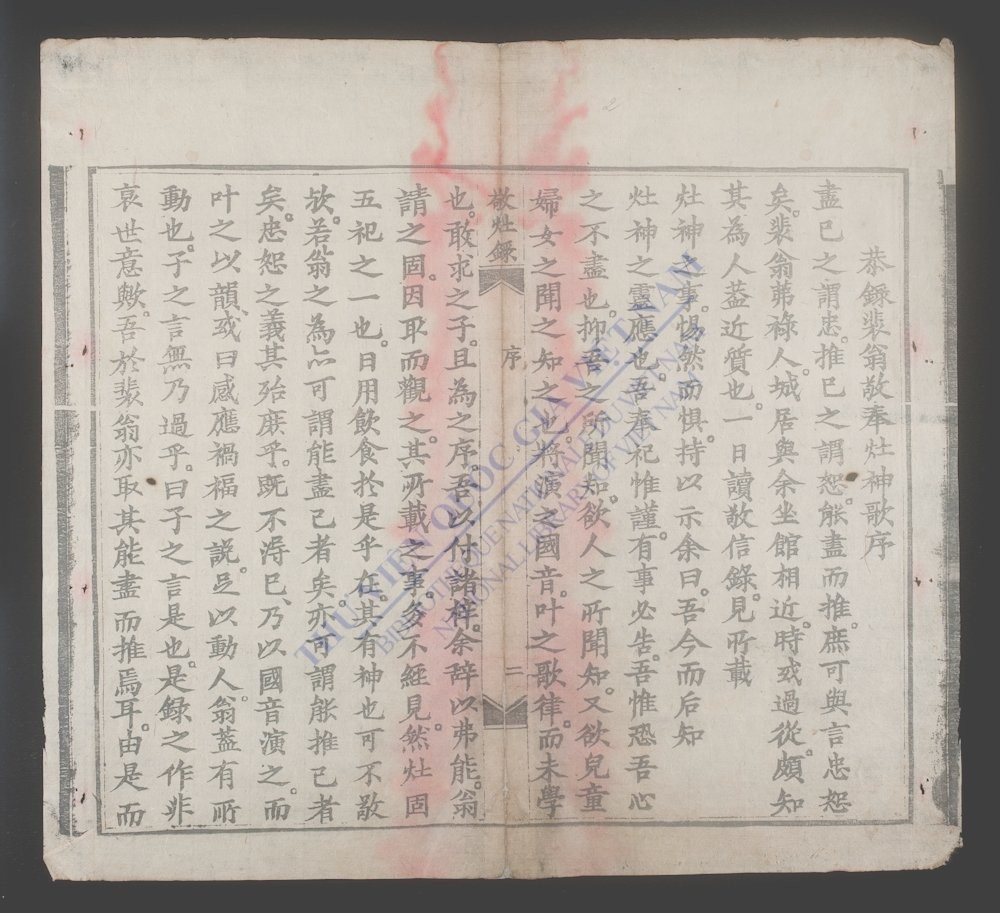 恭錄裴翁敬奉灶神歌序
盡已之謂忠。推已之謂恕。能盡而推。庶可與言忠恕
矣。裴翁茀祿人。城居與余坐館相近。時或過從。頗知
其為人葢近質也。一日讀敬信錄。見所載
灶神之事。惕然而惧。持以示余曰。吾今而后知
灶神之靈應也。吾奉祀惟謹。有事必告。吾惟恐吾心
之不盡也。抑吾之所聞知。欲人之所聞知。又欲兒童
婦女之聞之知之也。將演之國音。叶之歌律。而未學
敬灶錄
序
二
也。敢求之子。且為之序。吾以付諸梓。余辞以弗能。翁
請之固。因取而觀之。其所載之事。多不經見。然灶固
五祀之一也。日用飲食於是乎在。其有神也可不敬
欤。若翁之為亦可謂能盡己者矣。亦可謂能推己者
矣。忠恕之義其殆庶乎。既不得已、乃以國音演之。而
叶之以韻。或曰感應禍福之説。足以動人。翁葢有所
動也。子之言無乃過乎。曰子之言是也。是錄之作非
哀世意歟。吾於裴翁亦取其能盡而推焉耳。由是而
2
THƯ VIỆN QUỐC GIA VIỆT NAM
BIBLIOTHÈQUE NATIONALE DU VIETNAM
NATIONAL LIBRARY OF VIETNAM